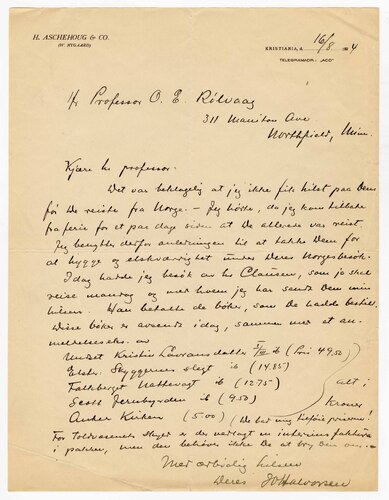 H. ASCHEHOUG & CO.
(W. NYGAARD)
KRISTIANIA, d. 16/8 1924
TELEGRAMADR.: „ACO"
Hr Professor O. E. Rölvaag
311 Manitou Ave
Northfield, Minn.
Kjære hr professor.
Det var beklagelig at jeg ikke fik hilst paa Dem
før De reiste fra Norge. – Jeg hörte, da jeg kom tilbake
fra ferie for et par dage siden at De allerede var reist.
Jeg benytter derfor anledningen til at takke Dem for
al hygge og elskværdighet under Deres Norgesbesök.
Idag hadde jeg besök av hr Clausen, som jo skal
reise mandag og med hvem jeg har sendt Dem min
hilsen. Han betalte de böker, som De hadde bestilt.
Disse böker er avsendt idag, sammen med et an-
meldelseseks. av
Undset Kristin Lavransdatter I/III ib (Pris 49.50)
Elster: Skyggernes slegt ib (14.85)
Falkberget Nattevagt ib (12.75)
Scott Jernbyrden ib (9.50)
Anker Kirken (5.00)
alt i
kroner
(De bad mig tilföie priserne!
For toldvæsenets skyld er der vedlagt en interims faktura
i pakken, men den behöver ikke De at bry Dem om. –
Med ærbödig hilsen
Deres JO Halvorsen